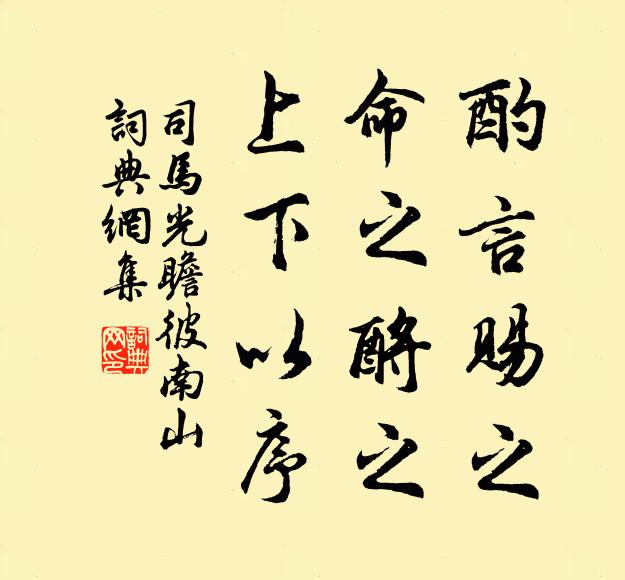 酌言賜之
命之酹之
上下以序
司馬光瞻彼南山
詞典網集
詞典網印